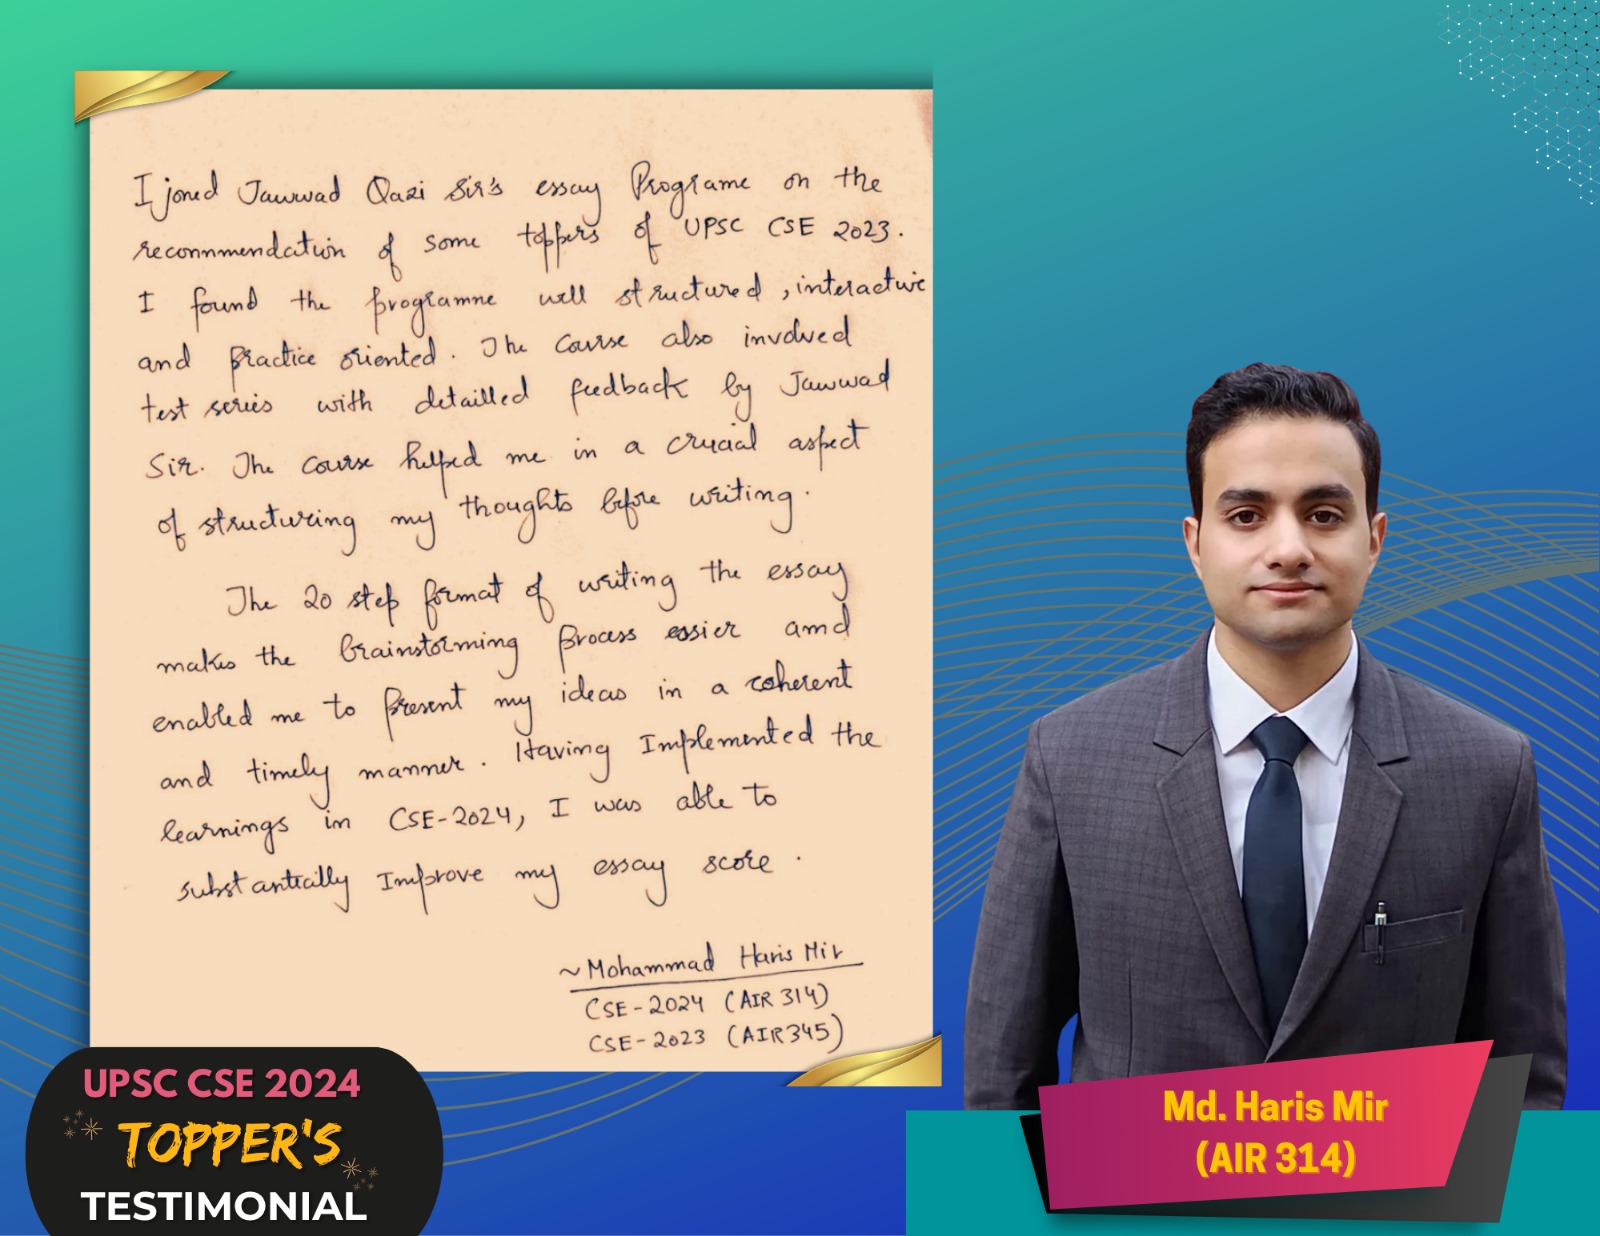 I joned Jawwad Qazi Sir's essay Programe on the
reconnmendation of some toppers of UPSC CSE 2023.
I found the programne well structured, interactive
and practice oriented. The course also involved
test series with detailled feedback by Jawwad
Sir. The course helped me in a crucial aspect
of structuring my thoughts before writing.
The 20 step format of writing the essay
makes the brainstorming process essier amd
enabled me to present my ideas in a coherent
and timely manner. Having Implemented the
learnings in CSE-2024, I was able to
substantially Improve my essay score.
~Mohammad Haris Mir
CSE-2024 (AIR 314)
CSE-2023 (AIR345)
UPSC CSE 2024
TOPPER'S
TESTIMONIAL
Md. Haris Mir
(AIR 314)